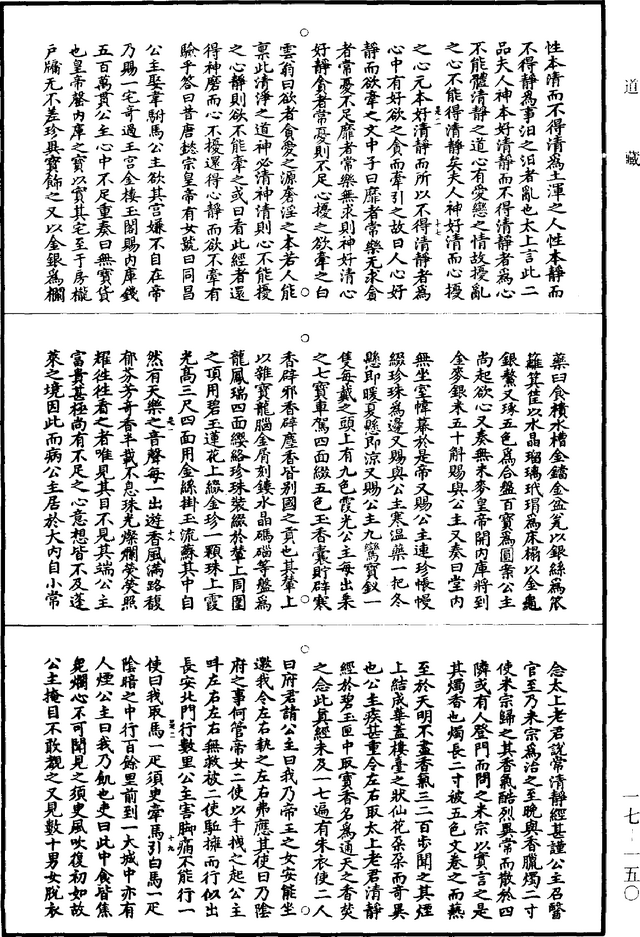 道藏
性本清而不得清為土渾之人性本靜而
不得靜為事汩之汩者亂也太上言此二
品夫人神本好清靜而不得清靜者為心
不能體清靜之道心有愛戀之情故擾亂
之心不能得清靜矣夫人神好清而心擾
之心元本好清靜而所以不得清靜者為
心中有好欲之貪而牽引之故曰人心好
靜而欲牽之文中子曰靡者常樂无求貪
者常憂不足靡者常樂無求則神好清心
好靜貪者常憂則不足心擾之欲牽之白
雲翁曰欲者貪愛之源奢淫之本若人能
稟此清淨之道神必清神清則心不能擾
之心靜則欲不能牽之或曰看此經者還
得神磨而心不擾還得心靜而欲不牽有
驗乎答曰昔唐懿宗皇帝有女號曰同昌
公主娶韋駙馬公主欲其宮嫌不自在帝
乃賜一宅奇過王宮金樓玉閣賜內庫錢
五百萬貫公主心中不足重奏曰無寶貨
也皇帝罄內庫之寶以實其宅至于房櫳
戶牖无不差珍異寶飾之又以金銀為欄
十七
藥臼食櫃水槽金鐺金盆瓮以銀絲為笊
籬箕筐以水晶瑠璃玳瑁為床榻以金龜
銀鰲又琢五色為合盤百寶為圓案公主
尚起欲心又奏無米麥皇帝開內庫將到
金麥銀米五十斛賜與公主又奏曰堂內
無坐室幃幕於是帝又賜公主連珍帳幔
綴珍珠為邊又賜與公主寒溫藥一把冬
懸即暖夏縣即涼又賜公主九鸞寶釵一
隻每戴之頭上有九色霞光公主每出乘
之七寶車駕四面綴五色玉香囊貯辟寒
香辟邪香辟塵香皆別國之貢也其輦上
以雜寶龍腦金屑刻鏤水晶碼碯等盤為
龍鳳瑞四面纓絡珍珠裝綴於輦上周圍
之頂用碧玉蓮花上綴金珍一顆珠上霞
光高三尺四面用金絲掛玉流蘇其中自
然有天樂之音聲每一出遊香風滿路馥
郁芬芳奇香半載不息珠光燦爛熒熒照
耀往往看之者唯見其目不見其端公主
富貴甚極尚有不足之心意想皆不及蓬
萊之境因此而病公主居於大內自小常
十八
念太上老君說常清靜經甚謹公主召醫
官至乃米宗為治之至晚與香臘燭二寸
使米宗歸之其香氣酷烈異常而散於四
隣或有人登門而問之米宗以實言之是
其燭香也燭長二寸被五色文卷之而爇
至於天明不盡香氣三二百步聞之其煙
上結成華蓋樓臺之狀仙花朵朵而奇異
也公主疾甚重令左右取太上老君清靜
經於碧玉匣中取寶香名為通天之香焚
之念此真經未及一七遍有朱衣使二人
曰府君請公主曰我乃帝王之女安能坐
邀我令左右執之左右弗應其使曰乃陰
府之事何管帝女二使以手拽之起公主
呼左右左右無救被二使駈擁而行似出
長安北門行數里公主害腳痛不能行一
使曰我取馬一疋須吏牽馬引白馬一疋
陰暗之中行百餘里前到一大城中亦有
人煙公主曰我乃飢也吏曰此中食皆焦
臭爛心不可聞見之須吏風吹復初如故
公主掩目不敢覩之又見數十男女脫衣
十九
一七-一五〇